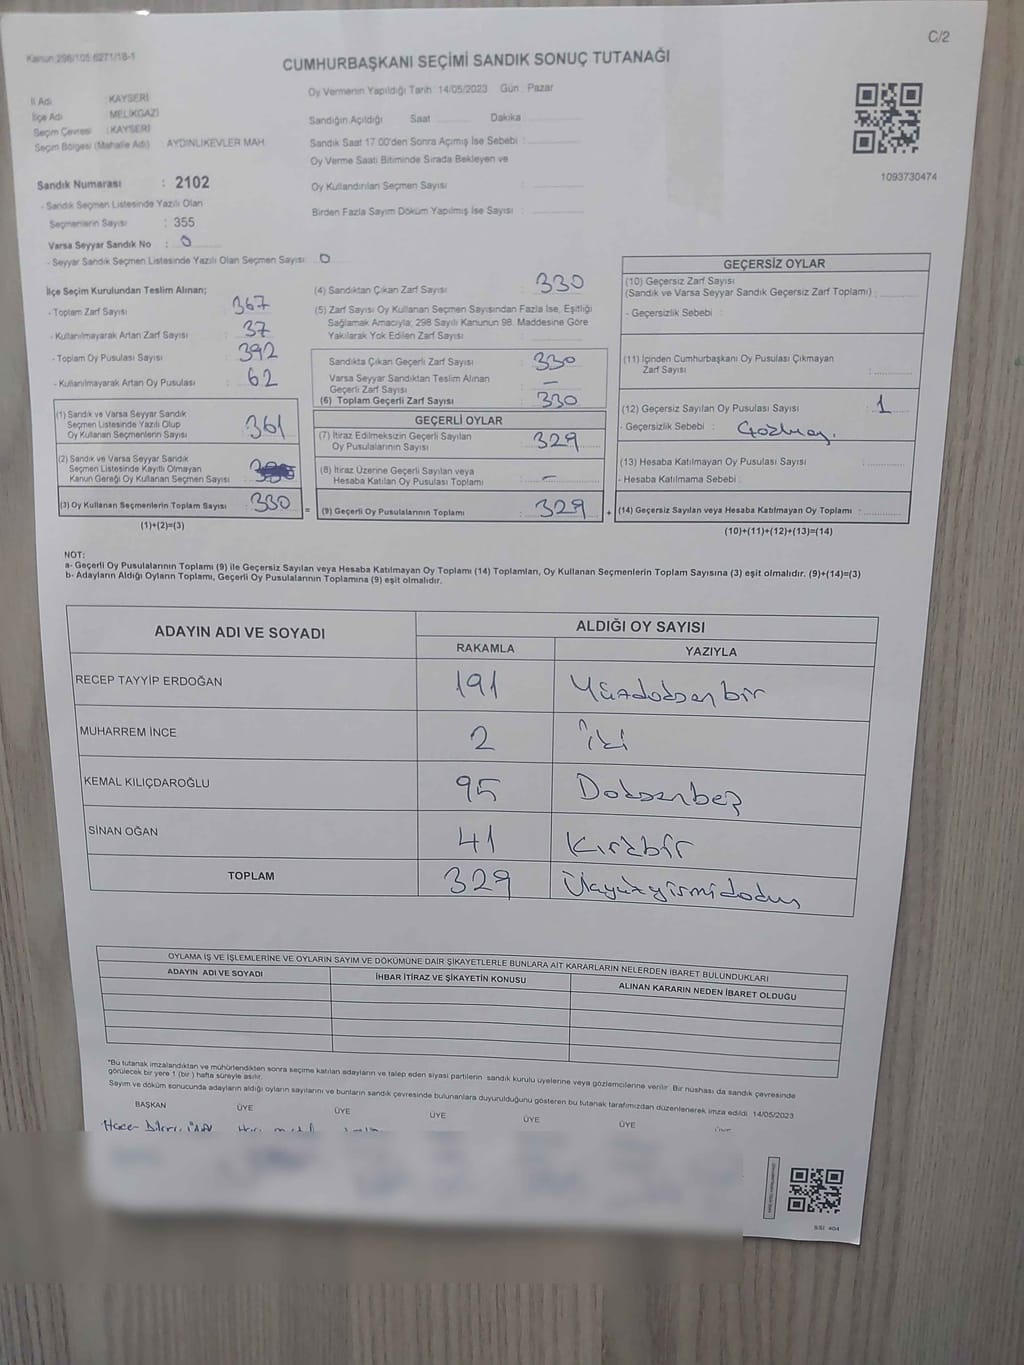 C/2
Kanun 298/105 6271/18-1
CUMHURBAŞKANI SEÇİMİ SANDIK SONUÇ TUTANAĞI
İl Adı : KAYSERİ
İlçe Adı : MELİKGAZİ
Seçim Çevresi : KAYSERİ
Seçim Bölgesi (Mahalle Adı) AYDINLIKEVLER MAH.
Sandık Numarası : 2102
- Sandık Seçmen Listesinde Yazılı Olan
Seçmenlerin Sayısı : 355
Varsa Seyyar Sandık No : 0
- Seyyar Sandık Seçmen Listesinde Yazılı Olan Seçmen Sayısı: 0
Oy Vermenin Yapıldığı Tarih : 14/05/2023 Gün : Pazar
Sandığın Açıldığı Saat ........... Dakika ...........
Sandık Saat 17.00'den Sonra Açımış İse Sebebi : ...........
Oy Verme Saati Bitiminde Sırada Bekleyen ve
Oy Kullandırılan Seçmen Sayısı : ...........
Birden Fazla Sayım Döküm Yapılmış İse Sayısı : ...........
1093730474
İlçe Seçim Kurulundan Teslim Alınan;
- Toplam Zarf Sayısı : 367
- Kullanılmayarak Artan Zarf Sayısı : 37
- Toplam Oy Pusulası Sayısı : 392
- Kullanılmayarak Artan Oy Pusulası : 62
(1) Sandık ve Varsa Seyyar Sandık
Seçmen Listesinde Yazılı Olup
Oy Kullanan Seçmenlerin Sayısı : 361
(2) Sandık ve Varsa Seyyar Sandık
Seçmen Listesinde Kayıtlı Olmayan
Kanun Gereği Oy Kullanan Seçmen Sayısı :
(3) Oy Kullanan Seçmenlerin Toplam Sayısı : 330
(1)+(2)=(3)
(4) Sandıktan Çıkan Zarf Sayısı : 330
(5) Zarf Sayısı Oy Kullanan Seçmen Sayısından Fazla İse, Eşitliği
Sağlamak Amacıyla, 298 Sayılı Kanunun 98. Maddesine Göre
Yakılarak Yok Edilen Zarf Sayısı : ...........
Sandıkta Çıkan Geçerli Zarf Sayısı : 330
Varsa Seyyar Sandıktan Teslim Alınan
Geçerli Zarf Sayısı : —
(6) Toplam Geçerli Zarf Sayısı : 330
GEÇERLİ OYLAR
(7) İtiraz Edilmeksizin Geçerli Sayılan
Oy Pusulalarının Sayısı : 329
(8) İtiraz Üzerine Geçerli Sayılan veya
Hesaba Katılan Oy Pusulası Toplamı : —
= (9) Geçerli Oy Pusulalarının Toplamı : 329 +
GEÇERSİZ OYLAR
(10) Geçersiz Zarf Sayısı
(Sandık ve Varsa Seyyar Sandık Geçersiz Zarf Toplamı) : ...........
- Geçersizlik Sebebi :
(11) İçinden Cumhurbaşkanı Oy Pusulası Çıkmayan
Zarf Sayısı : ...........
(12) Geçersiz Sayılan Oy Pusulası Sayısı : 1
- Geçersizlik Sebebi :
(13) Hesaba Katılmayan Oy Pusulası Sayısı : ...........
- Hesaba Katılmama Sebebi :
(14) Geçersiz Sayılan veya Hesaba Katılmayan Oy Toplamı : ...........
(10)+(11)+(12)+(13)=(14)
NOT:
a- Geçerli Oy Pusulalarının Toplamı (9) ile Geçersiz Sayılan veya Hesaba Katılmayan Oy Toplamı (14) Toplamları, Oy Kullanan Seçmenlerin Toplam Sayısına (3) eşit olmalıdır. (9)+(14)=(3)
b- Adayların Aldığı Oyların Toplamı, Geçerli Oy Pusulalarının Toplamına (9) eşit olmalıdır.
ADAYIN ADI VE SOYADI ALDIĞI OY SAYISI
RAKAMLA YAZIYLA
RECEP TAYYİP ERDOĞAN 191 Yüzdoksanbir
MUHARREM İNCE 2 İki
KEMAL KILIÇDAROĞLU 95 Doksanbeş
SİNAN OĞAN 41 Kırkbir
TOPLAM 329 Üçyüzyirmidokuz
OYLAMA İŞ VE İŞLEMLERİNE VE OYLARIN SAYIM VE DÖKÜMÜNE DAİR ŞİKAYETLERLE BUNLARA AİT KARARLARIN NELERDEN İBARET BULUNDUKLARI
ADAYIN ADI VE SOYADI İHBAR İTİRAZ VE ŞİKAYETİN KONUSU ALINAN KARARIN NEDEN İBARET OLDUĞU
*Bu tutanak imzalandıktan ve mühürlendikten sonra seçime katılan adayların ve talep eden siyasi partilerin sandık kurulu üyelerine veya gözlemcilerine verilir. Bir nüshası da sandık çevresinde
görülecek bir yere 1 (bir) hafta süreyle asılır.
Sayım ve döküm sonucunda adayların aldığı oyların sayılarını ve bunların sandık çevresinde bulunanlara duyurulduğunu gösteren bu tutanak tarafımızdan düzenlenerek imza edildi. 14/05/2023
BAŞKAN ÜYE ÜYE ÜYE ÜYE ÜYE